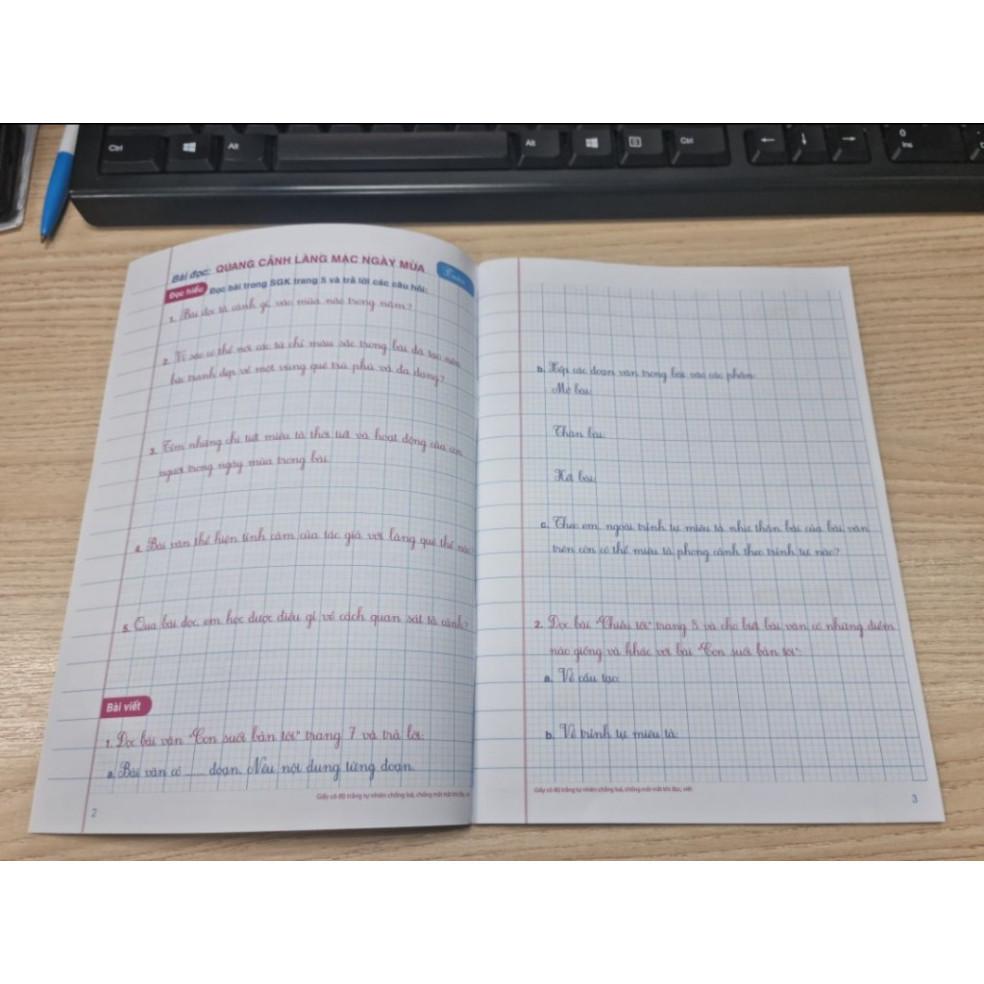 Ctrl
Alt
Alt
Ctrl
0
Ins
Bài đọc: QUANG CẢNH LÀNG MẠC NGÀY MÙA
Tuần
Đọc hiểu Đọc bài trong SGK trang 5 và trả lời các câu hỏi:
1. Bài đọc tả cảnh gì, vào mùa nào trong năm?
2. Vì sao có thể nói các từ chỉ màu sắc trong bài đã tạo nên
bức tranh đẹp về một vùng quê trù phú và đa dạng?
3. Tìm những chi tiết miêu tả thời tiết và hoạt động của con
người trong ngày mùa trong bài.
4. Bài văn thể hiện tình cảm của tác giả với làng quê thế nào?
5. Qua bài đọc, em học được điều gì về cách quan sát tả cảnh?
Bài viết
1. Đọc bài văn "Con suối bản tôi" trang 7 và trả lời:
a. Bài văn có ...... đoạn. Nêu nội dung từng đoạn.
Giấy có độ trắng tự nhiên chống loá, chống mỏi mắt khi đọc,
2
b. Xếp các đoạn văn trong bài vào các phần:
Mở bài:
Thân bài:
Kết bài:
c. Theo em, ngoài trình tự miêu tả như thân bài của bài văn
trên còn có thể miêu tả phong cảnh theo trình tự nào?
2. Đọc bài "Chiều tối" trang 8 và cho biết bài văn có những điểm
nào giống và khác với bài "Con suối bản tôi":
a. Về cấu tạo:
b. Về trình tự miêu tả:
Giấy có độ trắng tự nhiên chống loá, chống mỏi mắt khi đọc, viết
3